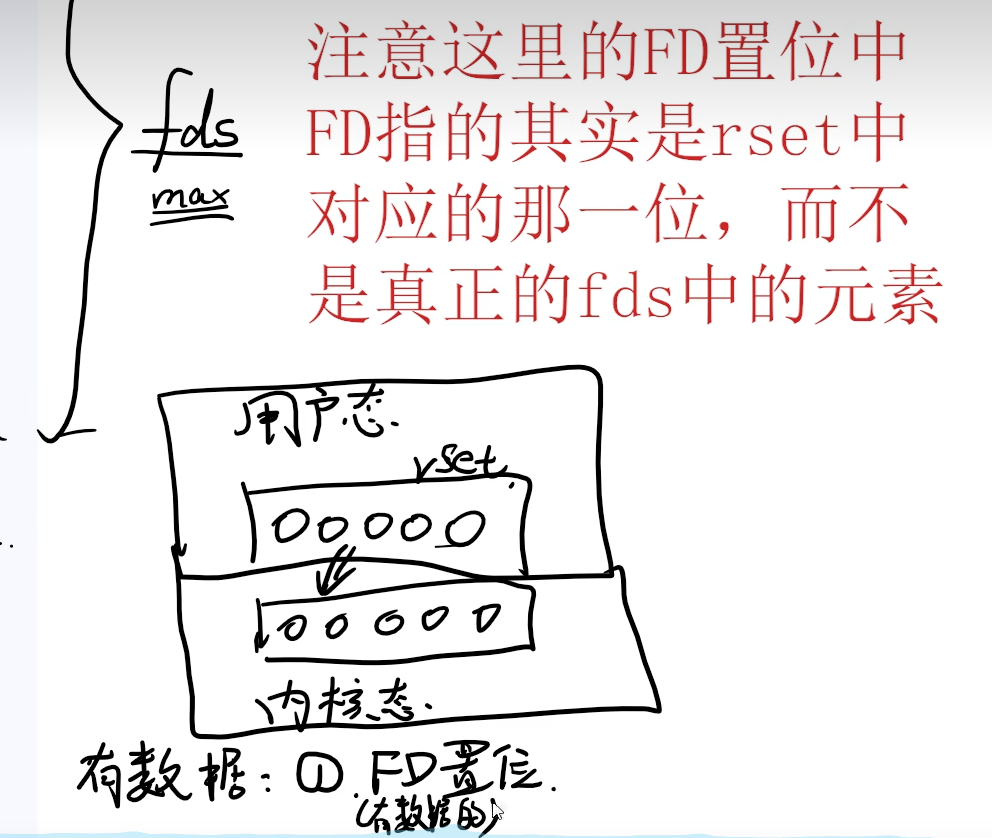 注意这里的FD置位中
FD指的其实是rset中
对应的那一位，而不
是真正的fds中的元素
fds
max
用户态.
rset
00000
00000
内核态.
有数据：①.FD置位.
(有数据的)